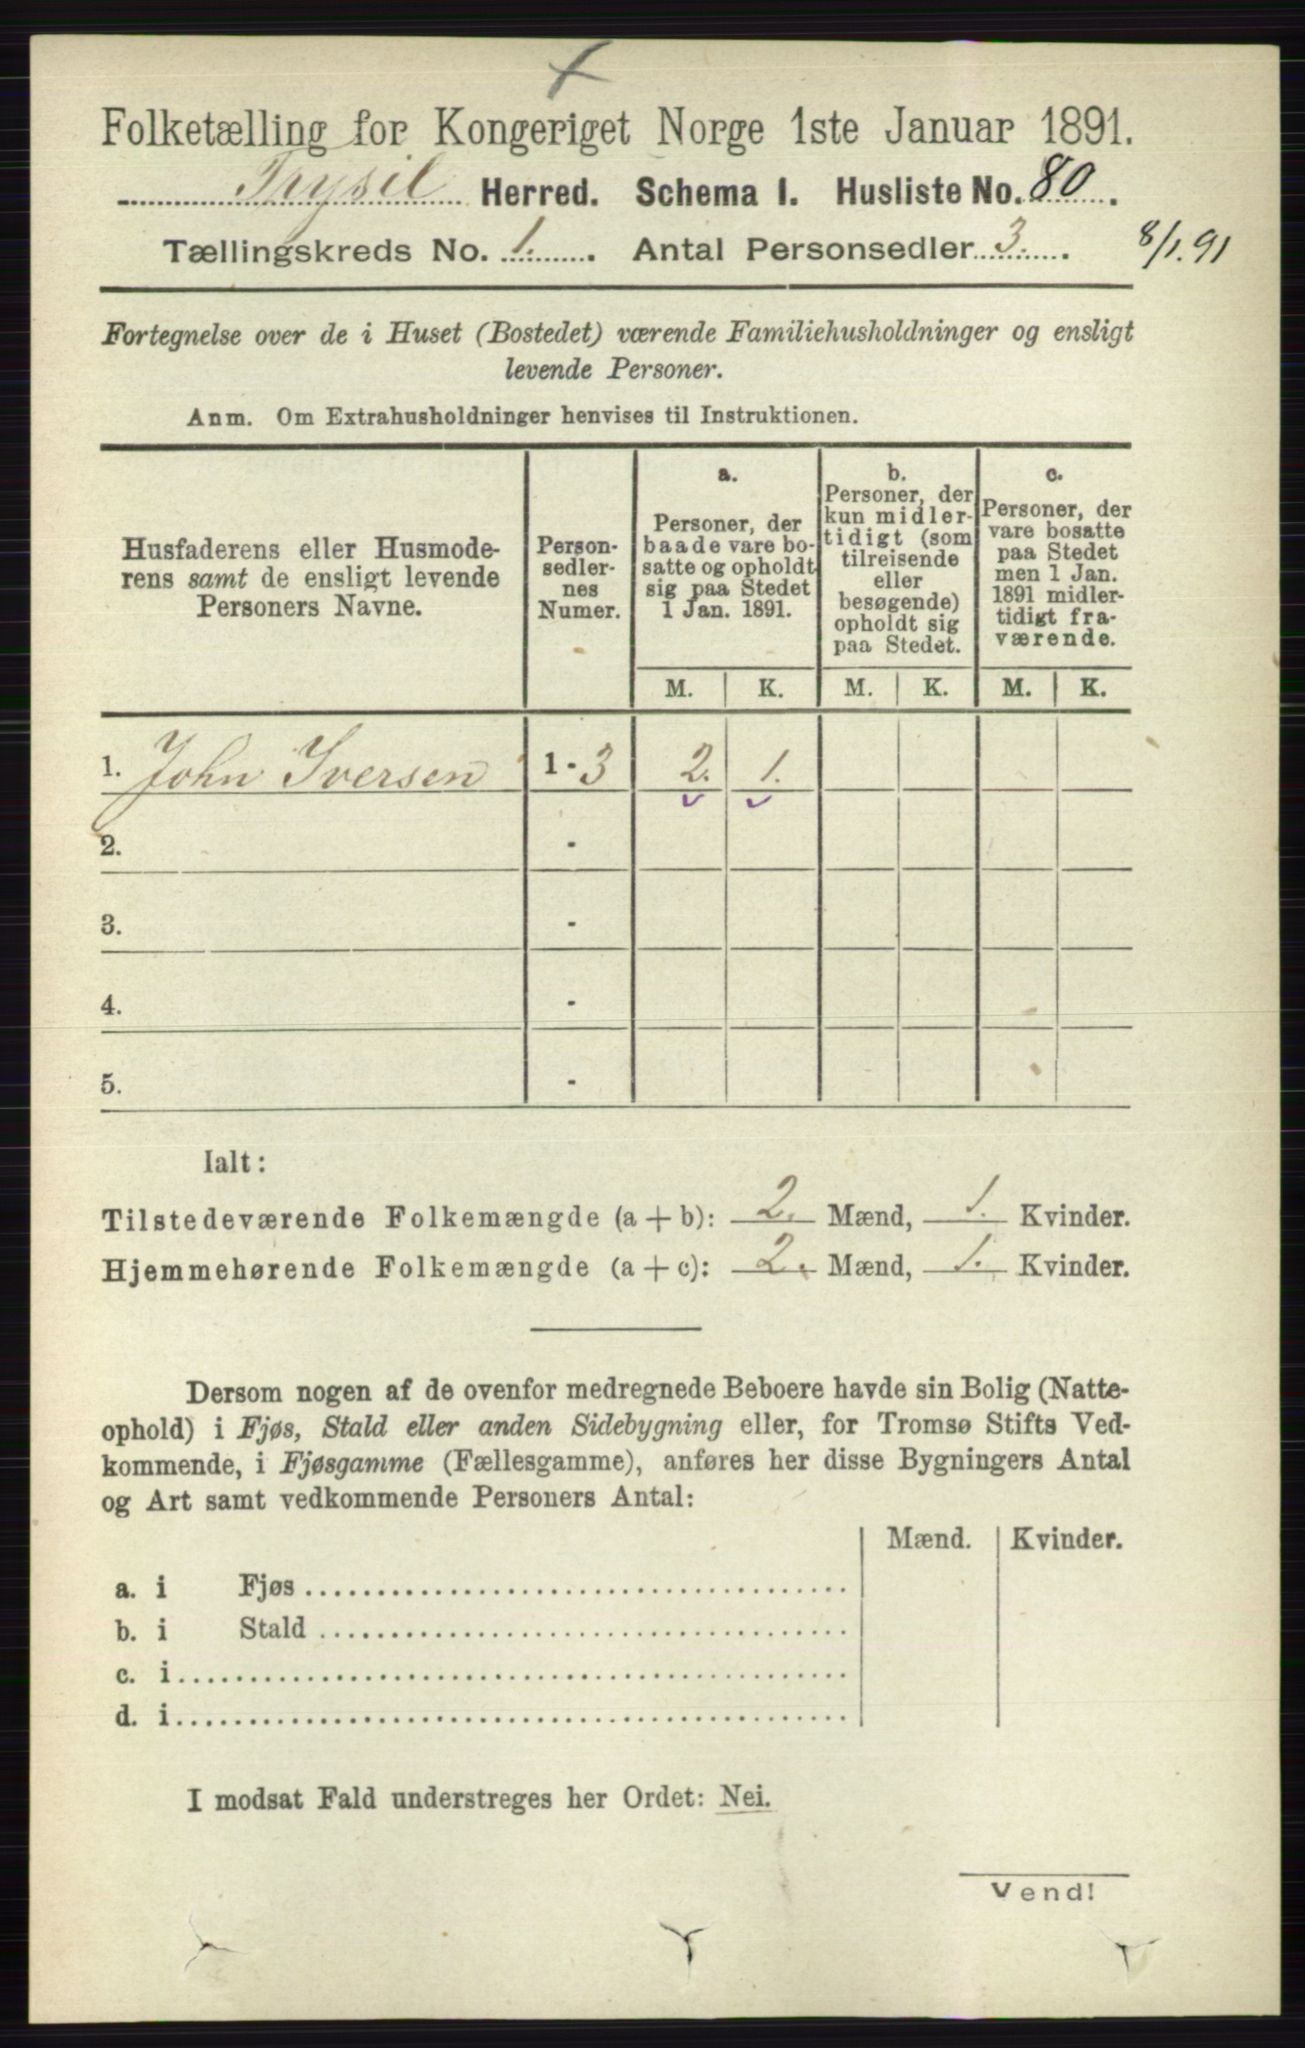 Folketælling for Kongeriget Norge 1ste Januar 1891.
Trysil Herred. Schema I. Husliste No. 80
Tællingskreds No. 1. Antal Personsedler 3. 8/1.91
Fortegnelse over de i Huset (Bostedet) værende Familiehusholdninger og ensligt
levende Personer.
Anm. Om Extrahusholdninger henvises til Instruktionen.
Husfaderens eller Husmode-
rens samt de ensligt levende
Personers Navne.
Person-
sedler-
nes
Numer.
a.
Personer, der
baade vare bo-
satte og opholdt
sig paa Stedet
1 Jan. 1891.
b.
Personer, der
kun midler-
tidigt (som
tilreisende
eller
besøgende)
opholdt sig
paa Stedet.
c.
Personer, der
vare bosatte
paa Stedet
men 1 Jan.
1891 midler-
tidigt fra-
værende.
M. K. M. K. M. K.
1. John Iversen 1 - 3 2. 1.
2. -
3. -
4. -
5. -
Ialt:
Tilstedeværende Folkemængde (a + b): 2. Mænd, 1. Kvinder.
Hjemmehørende Folkemængde (a + c): 2. Mænd, 1. Kvinder.
Dersom nogen af de ovenfor medregnede Beboere havde sin Bolig (Natte-
ophold) i Fjøs, Stald eller anden Sidebygning eller, for Tromsø Stifts Ved-
kommende, i Fjøsgamme (Fællesgamme), anføres her disse Bygningers Antal
og Art samt vedkommende Personers Antal:
Mænd. Kvinder.
a. i Fjøs
b. i Stald
c. i
d. i
I modsat Fald understreges her Ordet: Nei.
Vend!